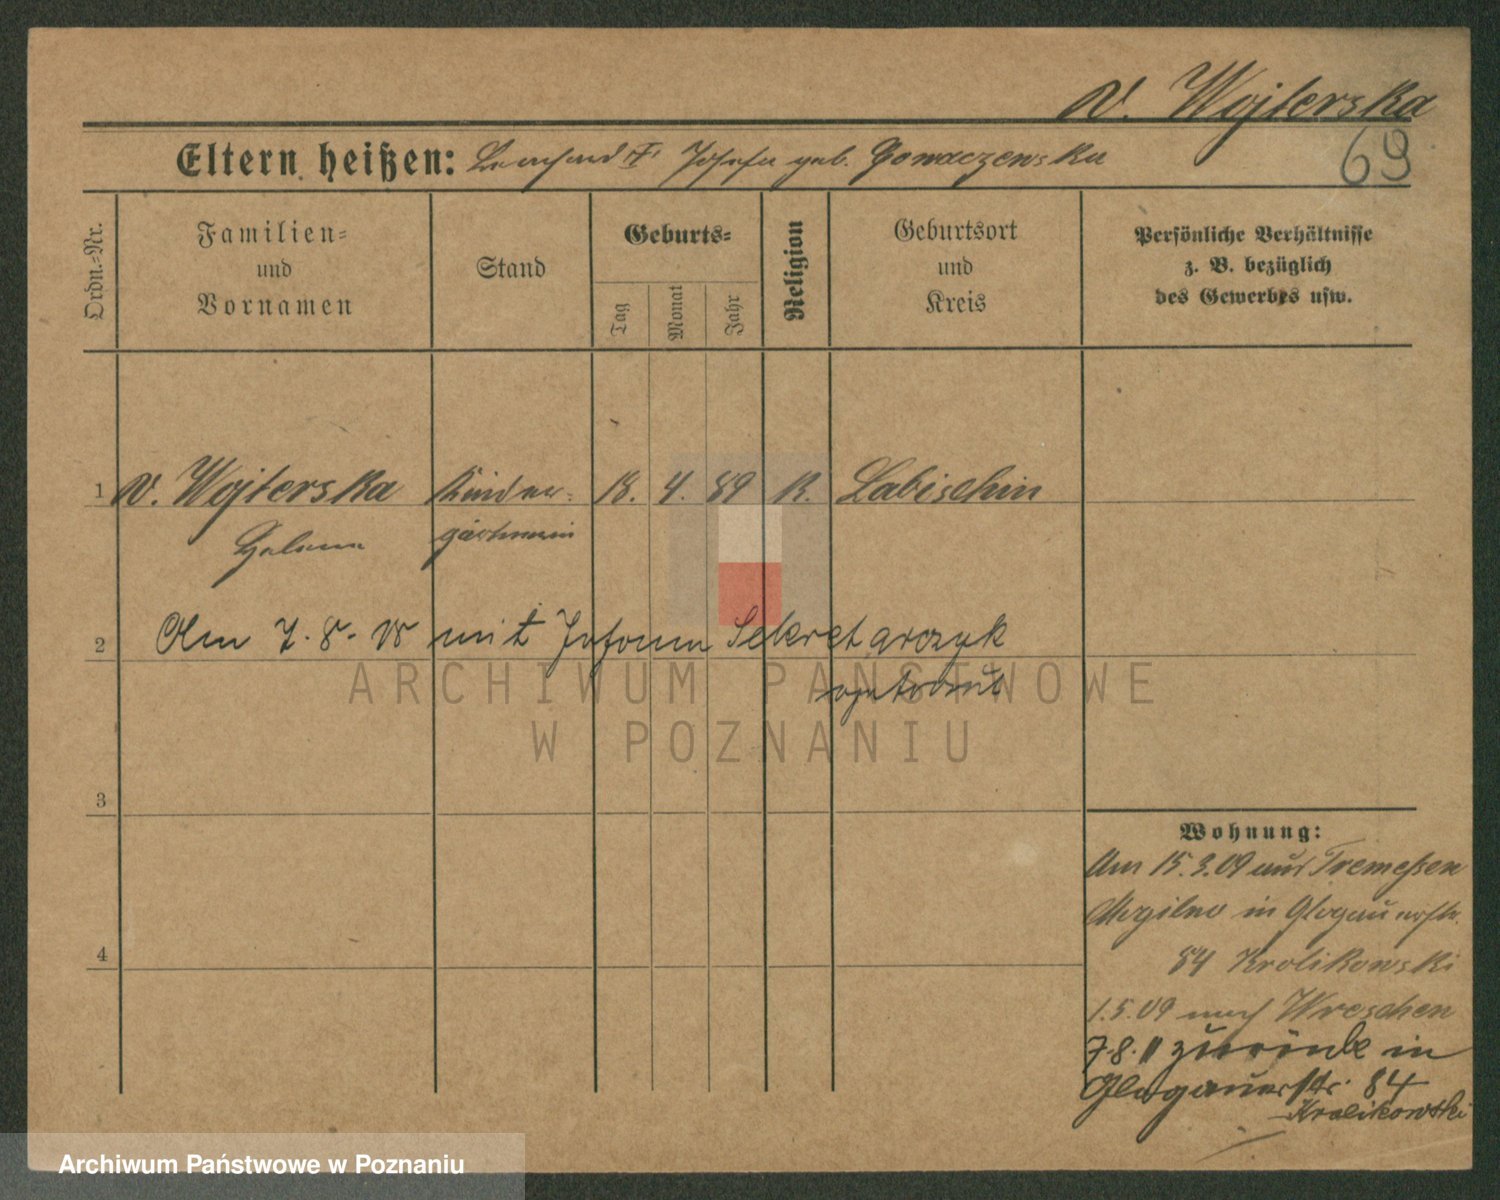 v. Wojterska
69
Eltern heißen: Leonhard † Josefa geb. Gonaczewska
Ordn.-Nr.
Familien-
und
Vornamen
Stand
Geburts-
Tag
Monat
Jahr
Religion
Geburtsort
und
Kreis
Persönliche Verhältnisse
z. B. bezüglich
des Gewerbes usw.
1 v. Wojterska Kinder- 18. 4. 89 K. Labischin
Helena gärtnerin
2 Am 7. 8. 18 mit Johann Sekretarczyk
getraut
3
4
Wohnung:
Am 15.3.09 aus Tremeßen
Mogilno in Glogauerstr.
84 Krolikowski
1.5.09 nach Wreschen
7.8. 11 zurück in
Glogauerstr. 84
Kralikowski
ARCHIWUM PAŃSTWOWE
W POZNANIU
Archiwum Państwowe w Poznaniu